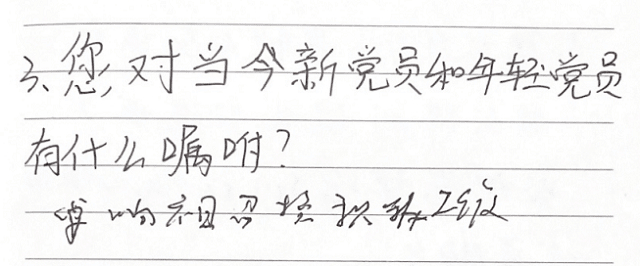 3、您,对当今新党员和年轻党员
有什么嘱咐?
积极工作